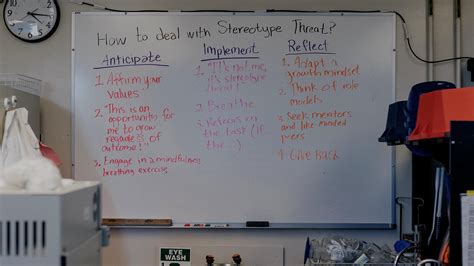 How to deal with Stereotype Threat?
Anticipate
1. Affirm your
values
2. "This is an
opportunity for
me to grow
regardless of
outcome!"
3. Engage in a mindfulness
breathing exercise
Implement
1. "It's not me,
it's stereotype
threat!"
2. Breathe
3. Refocus on
the task (if
the
Reflect
1. Adopt a
growth mindset
2. Think of role
models
3. Seek mentors
and like minded
peers
4. Give Back
EYE
WASH